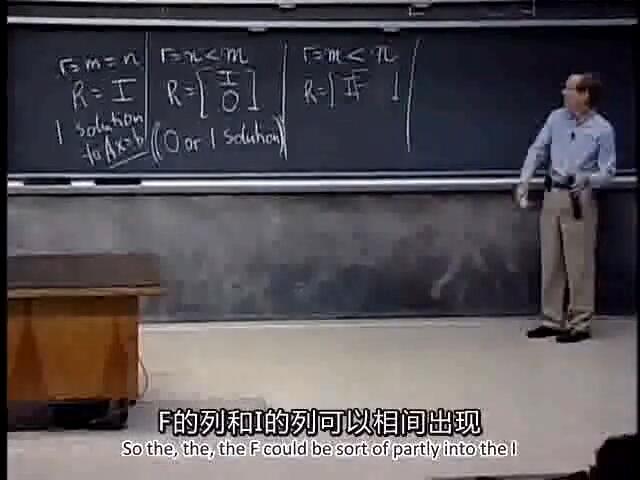 r=m=n
R=I
1 solution
to Ax=b
r=n<m
R=[I
0]
(0 or 1 solution)
r=m<n
R=[IF ]
F的列和I的列可以相间出现
So the, the, the F could be sort of partly into the I